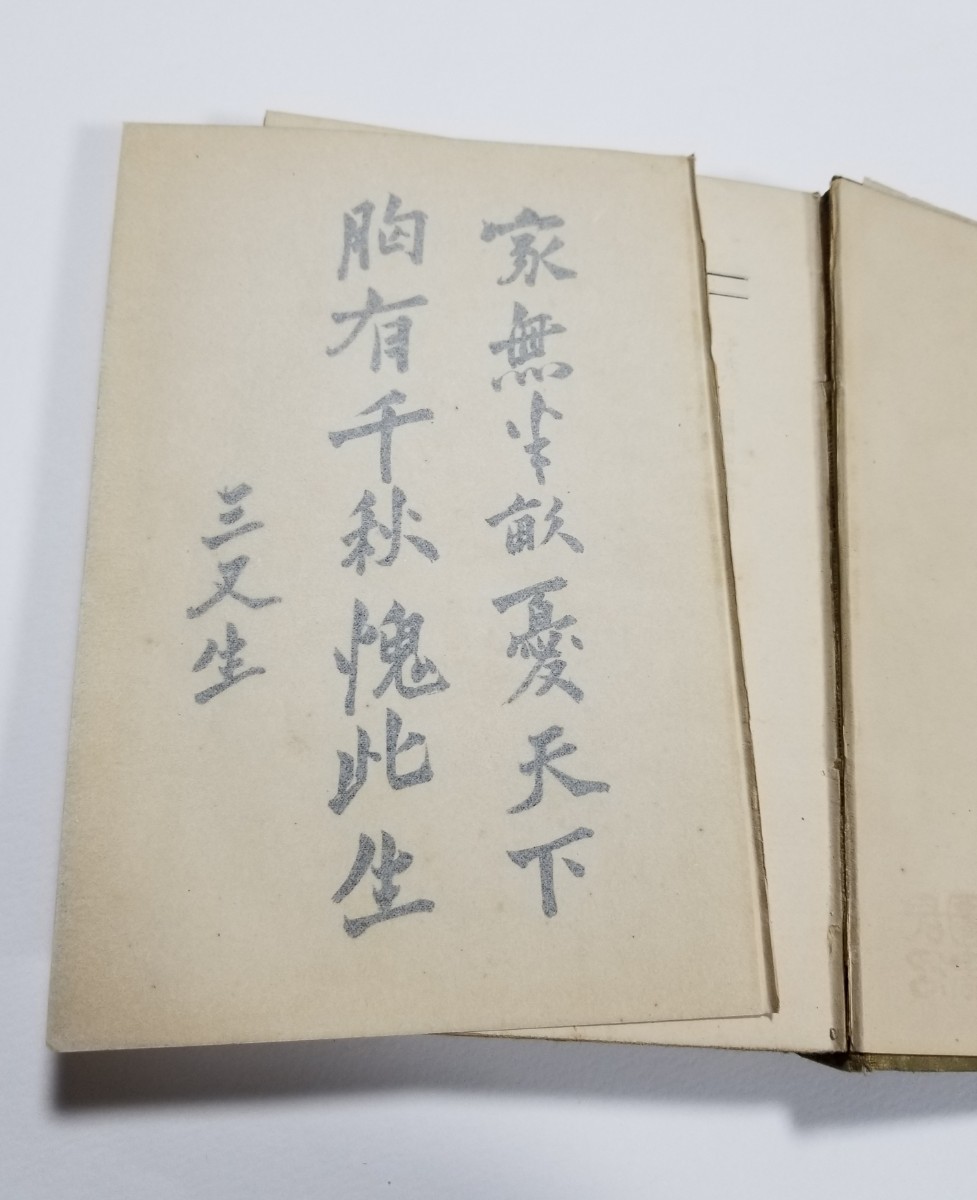 家無半畝憂天下
胸有千秋愧此生
三叉生